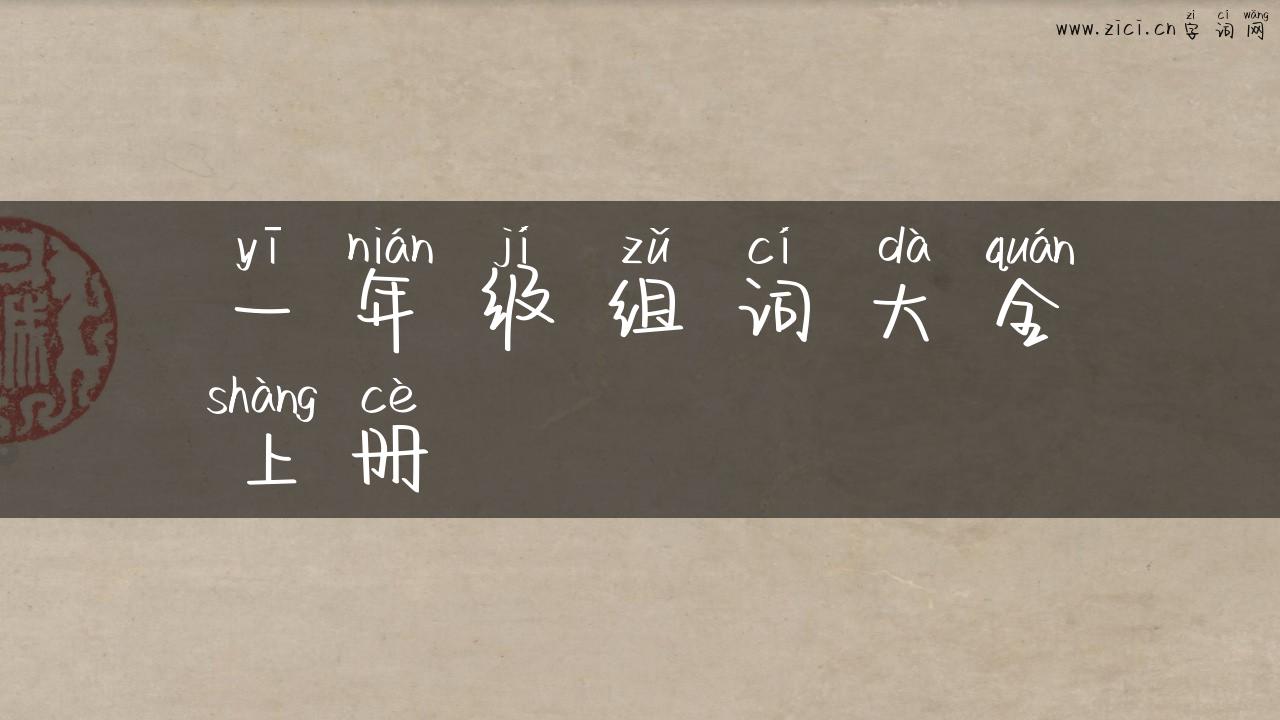 zì cí wǎng
www.zici.cn 字词网
yī nián jí zǔ cí dà quán
一年级组词大全
shàng cè
上册